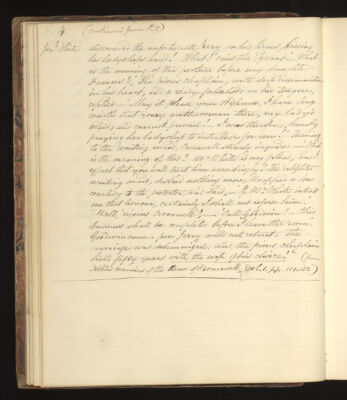 4 (continued from P. 3)
Jer: White. discovers the unfortunate Jerry on his knees, kissing
her Ladyship's hand. "What!" cries the Tyrant "What
is the meaning of this posture before my daughter
Frances?" The pious chaplain, with deep dissimulation
in his heart, and a ready falsehood on his tongue,
replied "May it please your Highness, I have long
courted that young gentlewoman there, my Lady's
maid, and cannot prevail. I was therefore, humbly
praying her ladyship to intercede for me." Turning
to the waiting maid, Cromwell sternly inquires "What
is the meaning of this? Mr White is my friend, and I
expect that you will treat him accordingly." The delighted
waiting maid, desires nothing more, dropping a low
courtesy to the protector, and said, "If Mr White intend
me that honour, certainly I shall not refuse him."
"Well," rejoins Cromwell! "Call Goodwin. This
business shall be completed before I leave the room."
Goodwin came. poor Jerry could not retreat. the
marriage was solemnized: and the pious chaplain
lived fifty years with the wife of his choice." (from
Noble's memoirs of the House of Cromwell, Vol. I. pp. 151-152)